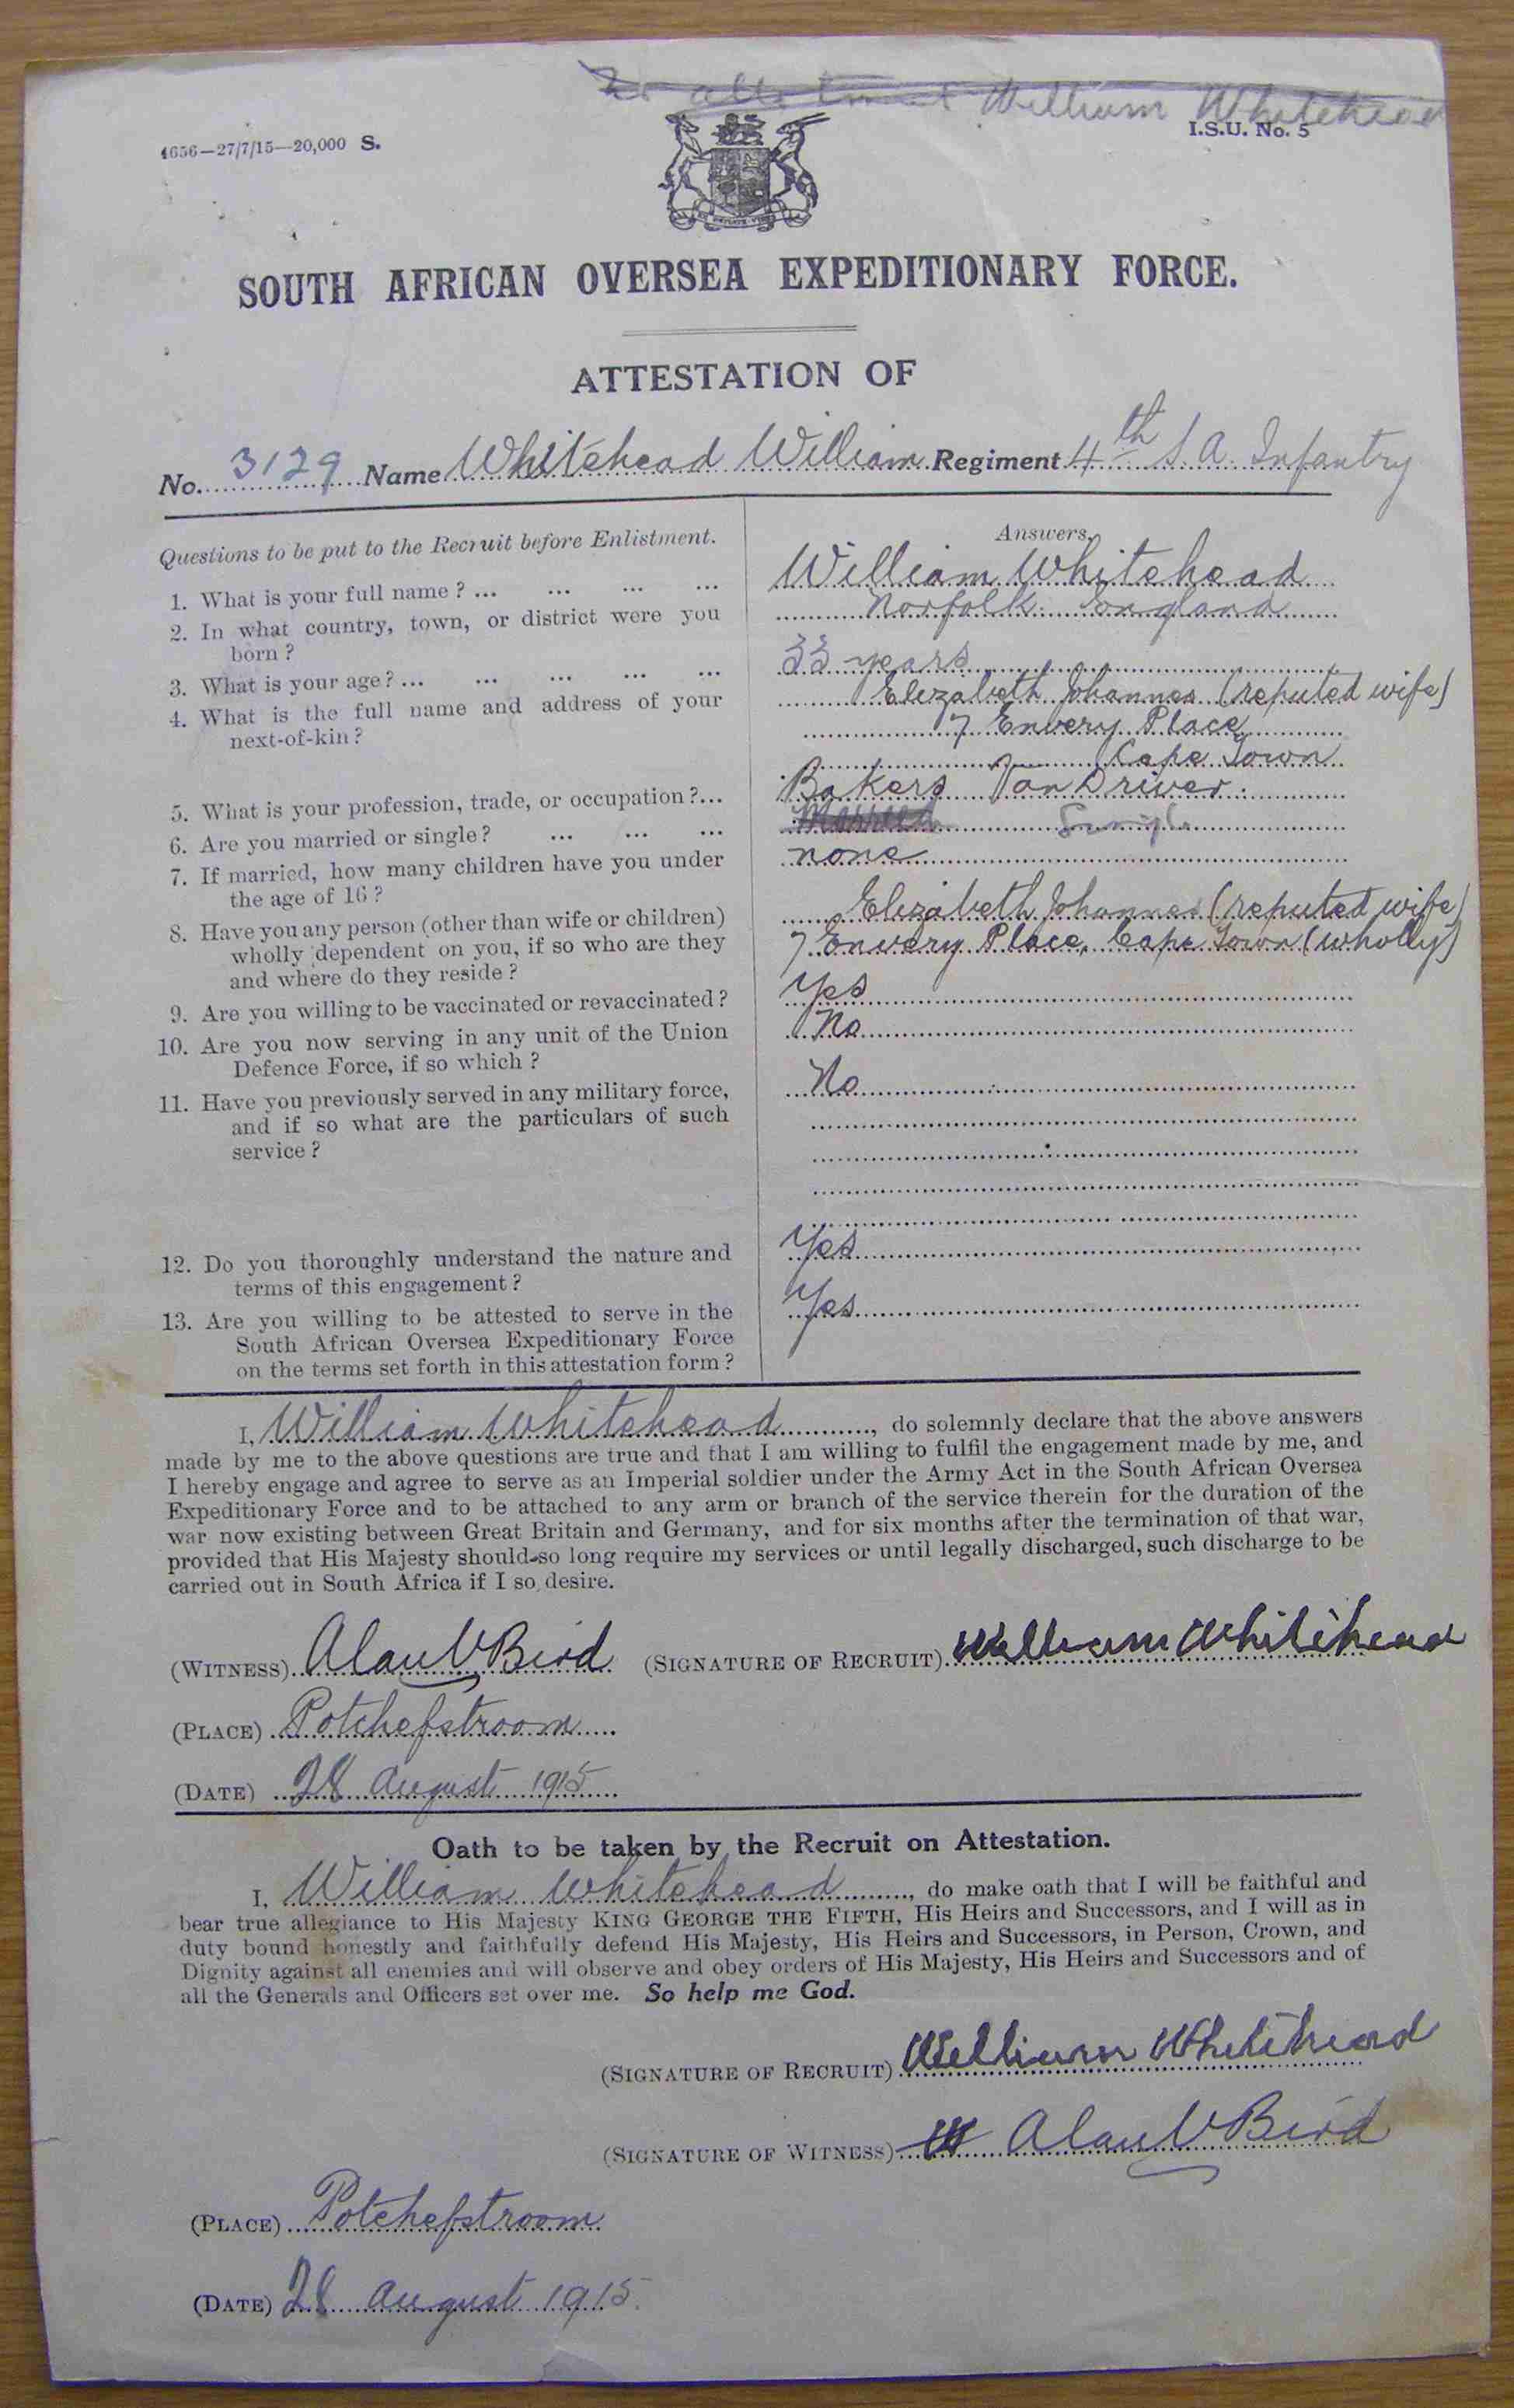 William Whitehead
4656—27/7/15—20,000 S.
I.S.U. No. 5
SOUTH AFRICAN OVERSEA EXPEDITIONARY FORCE.
ATTESTATION OF
No. 3129 Name Whitehead William Regiment 4th S.A. Infantry
Questions to be put to the Recruit before Enlistment.
Answers.
1. What is your full name? ... ... ... ...
William Whitehead
2. In what country, town, or district were you
born?
Norfolk England
3. What is your age? ... ... ... ... ...
33 years
4. What is the full name and address of your
next-of-kin?
Elizabeth Johannes (reputed wife)
7 Envery Place
Cape Town
5. What is your profession, trade, or occupation?...
Bakers Van Driver.
6. Are you married or single? ... ... ...
Married Single
7. If married, how many children have you under
the age of 16?
none
8. Have you any person (other than wife or children)
wholly dependent on you, if so who are they
and where do they reside?
Elizabeth Johannes (reputed wife)
7 Envery Place, Cape Town (wholly)
9. Are you willing to be vaccinated or revaccinated?
Yes
10. Are you now serving in any unit of the Union
Defence Force, if so which?
No
11. Have you previously served in any military force,
and if so what are the particulars of such
service?
No
12. Do you thoroughly understand the nature and
terms of this engagement?
Yes
13. Are you willing to be attested to serve in the
South African Oversea Expeditionary Force
on the terms set forth in this attestation form?
Yes
I, William Whitehead, do solemnly declare that the above answers
made by me to the above questions are true and that I am willing to fulfil the engagement made by me, and
I hereby engage and agree to serve as an Imperial soldier under the Army Act in the South African Oversea
Expeditionary Force and to be attached to any arm or branch of the service therein for the duration of the
war now existing between Great Britain and Germany, and for six months after the termination of that war,
provided that His Majesty should so long require my services or until legally discharged, such discharge to be
carried out in South Africa if I so desire.
(WITNESS) Alan V Bird (SIGNATURE OF RECRUIT) William Whitehead
(PLACE) Potchefstroom
(DATE) 28 August 1915
Oath to be taken by the Recruit on Attestation.
I, William Whitehead, do make oath that I will be faithful and
bear true allegiance to His Majesty KING GEORGE THE FIFTH, His Heirs and Successors, and I will as in
duty bound honestly and faithfully defend His Majesty, His Heirs and Successors, in Person, Crown, and
Dignity against all enemies and will observe and obey orders of His Majesty, His Heirs and Successors and of
all the Generals and Officers set over me. So help me God.
(SIGNATURE OF RECRUIT) William Whitehead
(SIGNATURE OF WITNESS) Alan V Bird
(PLACE) Potchefstroom
(DATE) 28 August 1915.